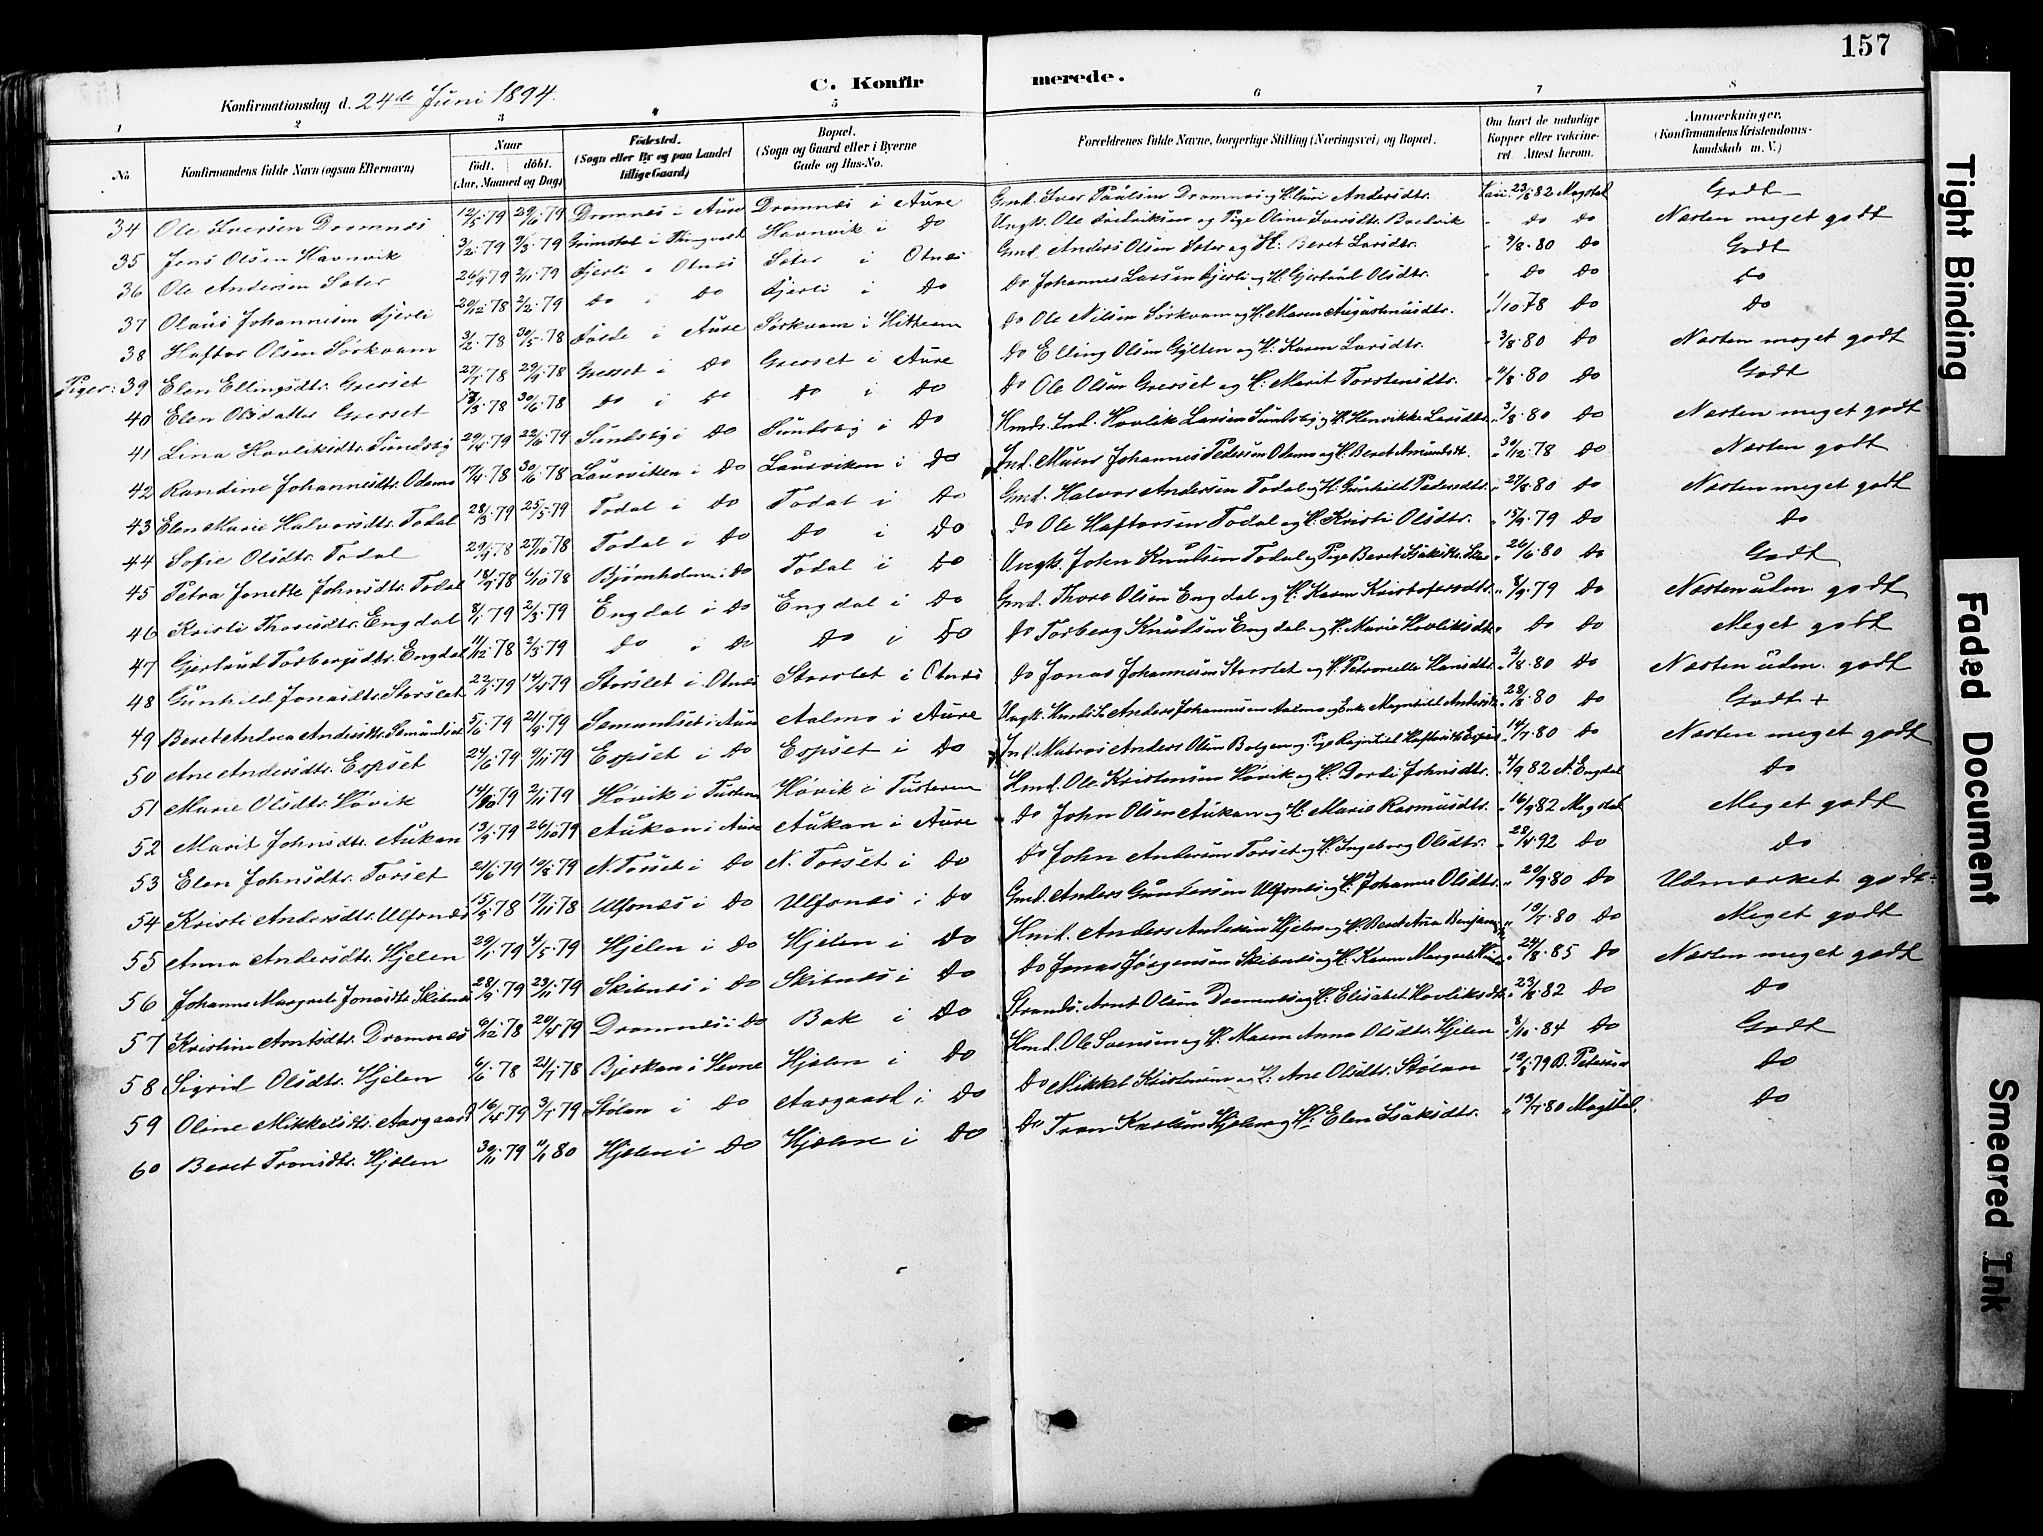 157
C. Konfirmerede.
Konfirmationsdag d. 24de Juni 1894.
1 2 3 4 5 6 7 8
No
Konfirmandens fulde Navn (ogsaa Efternavn)
Naar født. døbt. (Aar, Maaned og Dag)
Fødested. (Sogn eller By og paa Landet tillige Gaard)
Bopæl. (Sogn og Gaard eller i Byerne Gade og Hus-No.
Forældrenes fulde Navne, borgerlige Stilling (Næringsvei) og Bopæl.
Om havt de naturlige Kopper eller vaccineret. Attest herom.
Anmærkninger. (Konfirmandens Kristendomskundskab m. V.)
34 Ole Iversen Dromnes 12/5 79 29/6 79 Dromnes i Aure Dromnes i Aure Gmd. Iver Paulsen Dromnes Andersdtr. Vacc. 23/8 82 Magstal Godt
35 Jens Olsen Havnvik 3/2 79 9/3 79 Grimstad i Havnvik i Do Ungk. Ole Fredriksen og Pige Oline Iversdtr. Bredvik " do do Næsten meget godt
36 Ole Andersen Sæter 26/9 79 2/11 79 Fjerli i Otnes Sæter i Otnes Gmd. Anders Olsen Sæter og H. Beret Larsdtr. " 9/8 80 do Godt
37 Olaus Johannesen Fjerli 29/12 78 2/2 79 do i do Fjerli i do do Johannes Larsen Fjerli og H. Gjertrud Olsdtr. " do do do
38 Haftor Olsen Sørkvam 3/2 78 30/5 78 i Aure Sørkvam i do Ole Nilsen Sørkvam og H. Maren Augustinusdtr. " 1/10 78 do do
Piger: 39 Elen Ellingsdtr. Gresset 27/7 78 29/9 78 Gresset i do Gresset i Aure do Elling Olsen Gylten og H. Karen Larsdtr. " 3/8 80 do Næsten meget godt
40 Elen Olsdatter Gresset 18/3 78 30/6 78 do i do do i do do Ole Olsen Gresset og H. Marit Torstensdtr. " 11/8 80 do Godt
41 Lina Havliksdtr. Sundsbø 29/4 79 22/6 79 Sundsby i do Sundsby i do Hmd. Ind. Havlik Larsen Sundsby og H. Henrikke Larsdtr. " 3/8 80 do Næsten meget godt
42 Randine Johannesdtr. Odemo 17/4 78 30/6 78 Laurviken i do Laurviken i do Ind. Murer Johannes Pedersen Odemo og H. Beret Amundsdt. " 30/12 78 do Næsten godt
43 Elen Marie Halvorsdtr. Todal 28/3 79 25/5 79 Todal i do Todal i do Gmd. Halvor Andersen Todal og H. Gunhild Pedersdtr. " 27/8 80 do Næsten meget godt
44 Sofie Olsdtr. Todal 29/9 78 27/10 78 Todal i do do i do do Ole Haftorsen Todal og H. Kristi Olsdtr. " 15/9 79 do do
45 Petra Jonette Johnsdtr. Todal 18/9 78 6/10 78 Bjørnholmen i do Todal i do Ungk. John Knudsen Todal og Pige Beret Isaksdtr. " 26/6 80 do Godt
46 Kristi Thoresdtr. Engdal 8/1 79 2/3 79 Engdal i do Engdal i do Gmd. Thore Olsen Engdal og H. Karen Kristofersdtr. " 8/9 79 do Næsten udm. godt
47 Gjertrud Torbergsdtr. Engdal 11/12 78 2/3 79 do " do do i do do Torberg Knudsen Engdal og H. Marie Havliksdtr. " do do Meget godt
48 Gunhild Jonasdtr. Storslet 22/1 79 14/4 79 Storslet i Otnes Storslet i Otnes do Jonas Johannesen Storslet og H. Petronelle Hansdtr. " 2/8 80 do Næsten udm. godt
49 Beret Andrea Andersdtr. Semundset 5/6 79 21/9 79 Semundset i Aure Aalmo i Aure Ungk. Anders Johannesen Aalmo og Enke Magnhild Andersdt. " 28/8 80 do Godt +
50 Ane Andersdtr. Espset 24/6 79 9/11 79 Espset i do Espset i do Ind. Matros Anders Olsen Bolgen og Pige Ragnhild Haftorsdtr. Espset " 14/7 80 do Næsten meget godt
51 Marie Olsdtr. Høvik 14/10 79 2/11 79 Høvik i Tusteren Høvik i Tusteren Hmd. Ole Kristensen Høvik og H. Dordi Johnsdtr. " 4/9 82 A. Engdal do
52 Marit Johnsdtr. Aukan 13/9 79 26/10 79 Aukan i Aure Aukan i Aure do John Olsen Aukan og H. Marie Rasmusdtr. " 16/9 82 Magstal Meget godt
53 Elen Johnsdtr. Torset 21/6 79 10/8 79 N. Torset i do N. Torset i do do John Andersen Torset og H. Ingeborg Olsdtr. " 28/4 92 do do
54 Kristi Andersdtr. Ulfsnes 15/9 78 17/11 78 Ulfsnes i do Ulfsnes i do Gmd. Anders Gundersen Ulfsnes og H. Johanne Olsdtr. " 20/9 80 do Udmærket godt
55 Anna Andersdtr. Hjelen 29/1 79 4/5 79 Hjelen i do Hjelen i do Hmd. Anders Andersen Hjelen og H. Beret Ana " 19/7 80 do Meget godt
56 Johanne Margrete Jonasdtr. Skibnes 28/9 79 23/11 79 Skibnes i do Skibnes i do do Jonas Jørgensen Skibnes og H. Karen Margrete " 24/8 85 do Næsten meget godt
57 Kristine Arntsdtr. Dromnes 9/12 78 20/4 79 Dromnes i do Bak i do Strands. Arnt Olsen Dromnes og H. Elisabet Havliksdtr. " 23/8 82 do do
58 Sigrid Olsdtr. Hjelen 6/6 78 21/7 78 Bjerkan i Hevne Hjelen i do Hmd. Ole Svensen og H. Maren Anna Olsdtr. Hjelen " 8/10 84 do Godt
59 Oline Mikkelsdtr. Aargaard 16/4 79 3/7 79 Stølen i do Aargaard i do do Mikkel Kristensen og H. Ane Olsdtr. Stølan " 12/8 79 B. Petersen do
60 Beret Tronsdtr. Hjelen 30/11 79 1/1 80 Hjelen i do Hjelen i do do Tron Karlsen Hjelen og H. Elen Isaksdtr. " 13/7 80 Magstal. do
Tight Binding
Faded Document
Smeared Ink